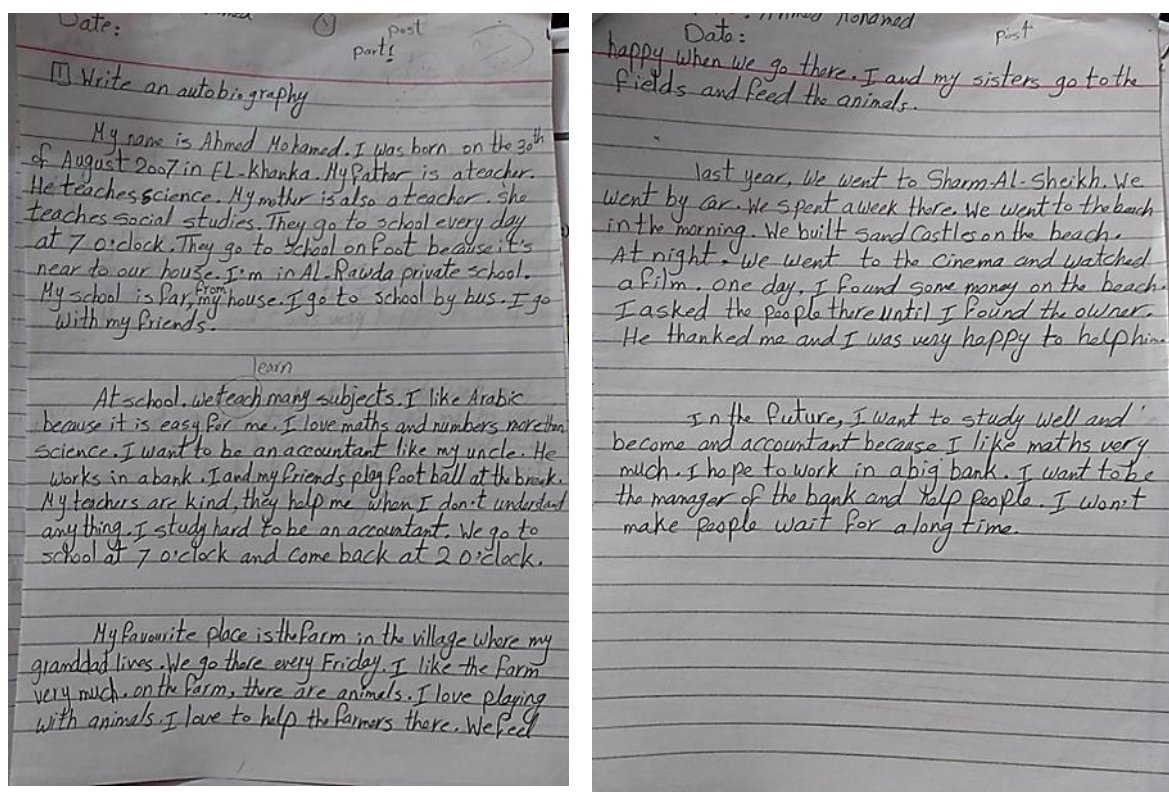 Date:
post
part1
1 Write an autobiography
My name is Ahmed Mohamed. I was born on the 30th
of August 2007 in EL-Khanka. My father is a teacher.
He teaches science. My mother is also a teacher. She
teaches social studies. They go to school every day
at 7 o'clock. They go to school on foot because it's
near to our house. I'm in AL-Rawda private school.
My school is far, from my house. I go to school by bus. I go
with my friends.
learn
At school. we teach many subjects. I like Arabic
because it is easy for me. I love maths and numbers more than
science. I want to be an accountant like my uncle. He
works in a bank. I and my friends play foot ball at the break.
My teachers are kind, they help me when I don't understand
any thing. I study hard to be an accountant. We go to
school at 7 o'clock and come back at 2 o'clock.
My favourite place is the farm in the village where my
granddad lives. We go there every Friday. I like the farm
very much. on the farm, there are animals. I love playing
with animals. I love to help the farmers there. We feel
Mohamed
Date:
post
happy when we go there. I and my sisters go to the
fields and feed the animals.
last year, we went to Sharm-Al-Sheikh. We
went by car. We spent a week there. We went to the beach
in the morning. We built sand castles on the beach.
At night. we went to the cinema and watched
a film. one day, I found some money on the beach.
I asked the people there until I found the owner.
He thanked me and I was very happy to help him.
In the future, I want to study well and
become and accountant because I like maths very
much. I hope to work in a big bank. I want to be
the manager of the bank and help people. I won't
make people wait for a long time.